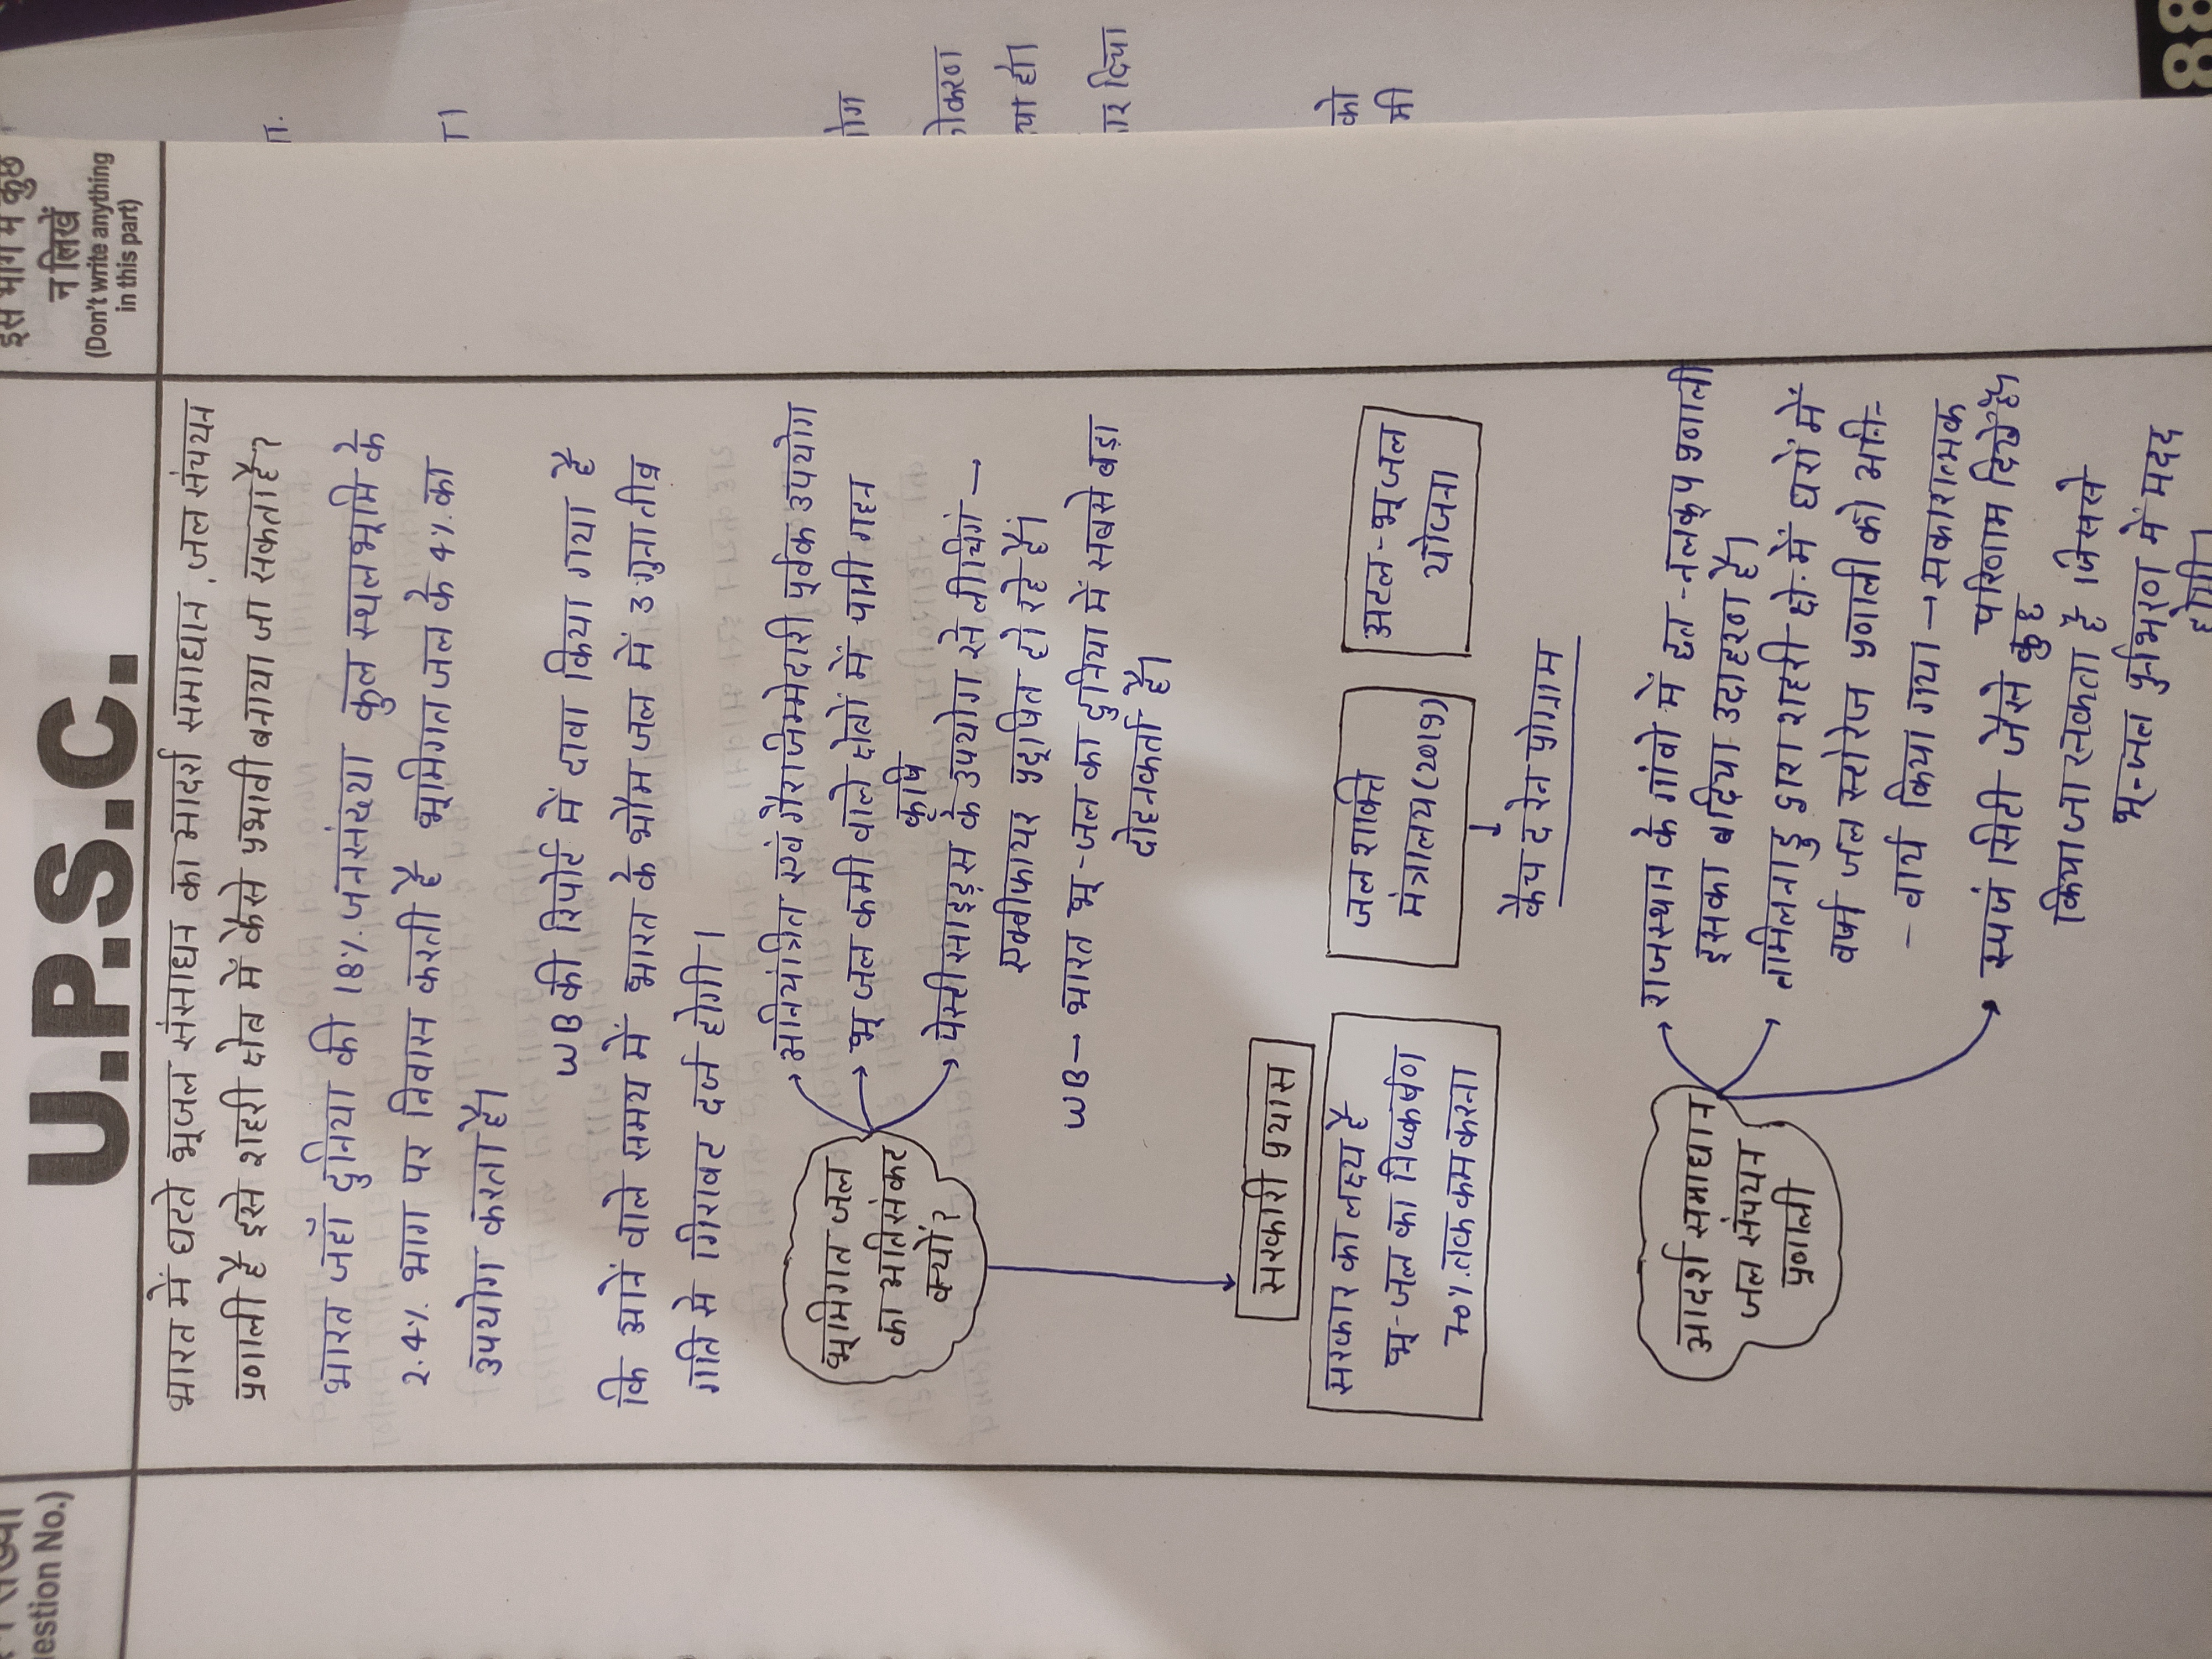 U.P.S.C.
इस भाग में कुछ
न लिखें
(Don't write anything
in this part)
estion No.)
भारत में घटते भूजल संसाधन का आदर्श समाधान, जल संचयन
प्रणाली है इसे शहरी क्षेत्र में कैसे प्रभावी बनाया जा सकता है?
भारत जहाँ दुनिया की 18% जनसंख्या कुल स्थलभूमि के
2.4% भाग पर निवास करती है भूमिगत जल के 4% का
उपयोग करता है।
WB की रिपोर्ट में दावा किया गया है
कि आने वाले समय में भारत के भौम जल में 3 गुना तीव्र
गति से गिरावट दर्ज होगी।
भूमिगत जल
का अतिसंकट
क्यों?
अनियंत्रित एवं गैरजिम्मेदारी पूर्वक उपयोग
भू जल कमी वाले क्षेत्रों में पानी गहन
कृषि
पेस्टीसाइड्स के उपयोग से लीचिंग →
एक्वीफायर प्रदूषित हो रहे हैं।
WB → भारत भू-जल का दुनिया में सबसे बड़ा
दोहनकर्ता है।
सरकारी प्रयास
सरकार का लक्ष्य है
भू-जल का निष्कर्षण
70% तक कम करना
जल शक्ति
मंत्रालय (2019)
कैच द रेन प्रोग्राम
अटल-भू जल
योजना
आदर्श समाधान
जल संचयन
प्रणाली
राजस्थान के गांवो में छत-नलकूप प्रणाली
इसका बढ़िया उदाहरण है।
तामिलनाडु द्वारा शहरी क्षे. में घरों में
वर्षा जल स्टोरेज प्रणाली को अनि-
- वार्य किया गया → सकारात्मक
परिणाम दिखे है।
स्पजं सिटी जैसे कुछ
किया जा सकता है जिससे
भू-जल पुर्नभरण में मदद
होगी।
को
मी
88